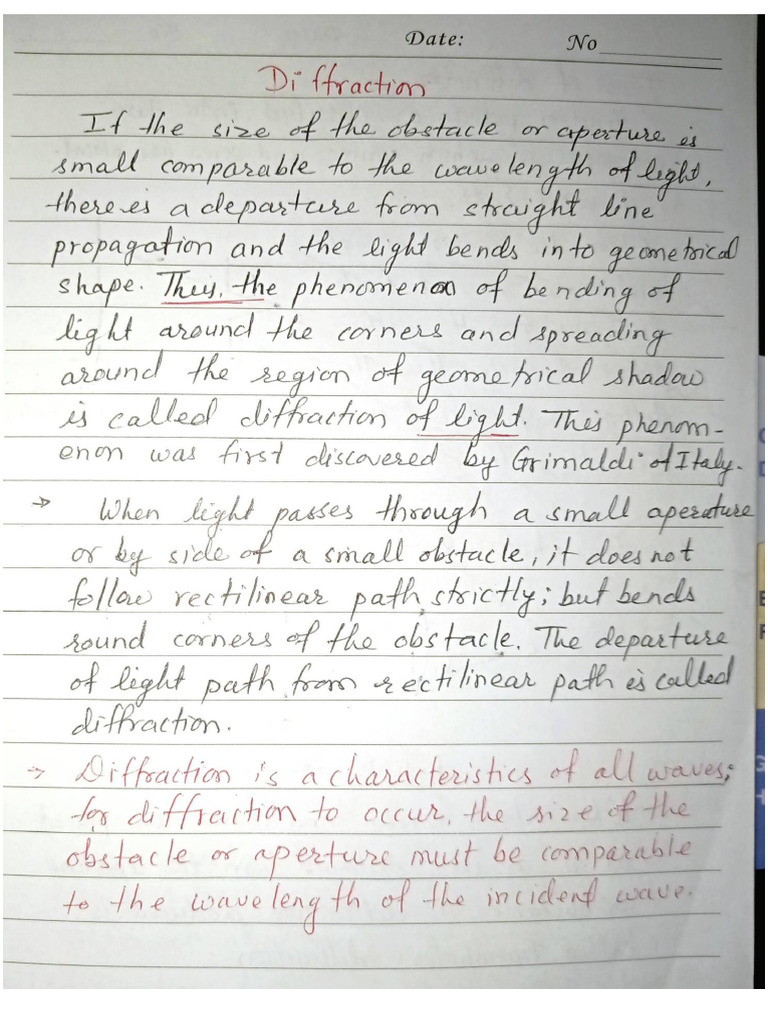 Date: No
Diffraction
If the size of the obstacle or aperture is
small comparable to the wavelength of light,
there is a departure from straight line
propagation and the light bends into geometrical
shape. Thus, the phenomenon of bending of
light around the corners and spreading
around the region of geometrical shadow
is called diffraction of light. This phenom-
enon was first discovered by Grimaldi of Italy.
→ When light passes through a small aperature
or by side of a small obstacle, it does not
follow rectilinear path strictly; but bends
round corners of the obstacle. The departure
of light path from rectilinear path is called
diffraction.
→ Diffraction is a characteristics of all waves;
for diffraction to occur, the size of the
obstacle or aperture must be comparable
to the wavelength of the incident wave.